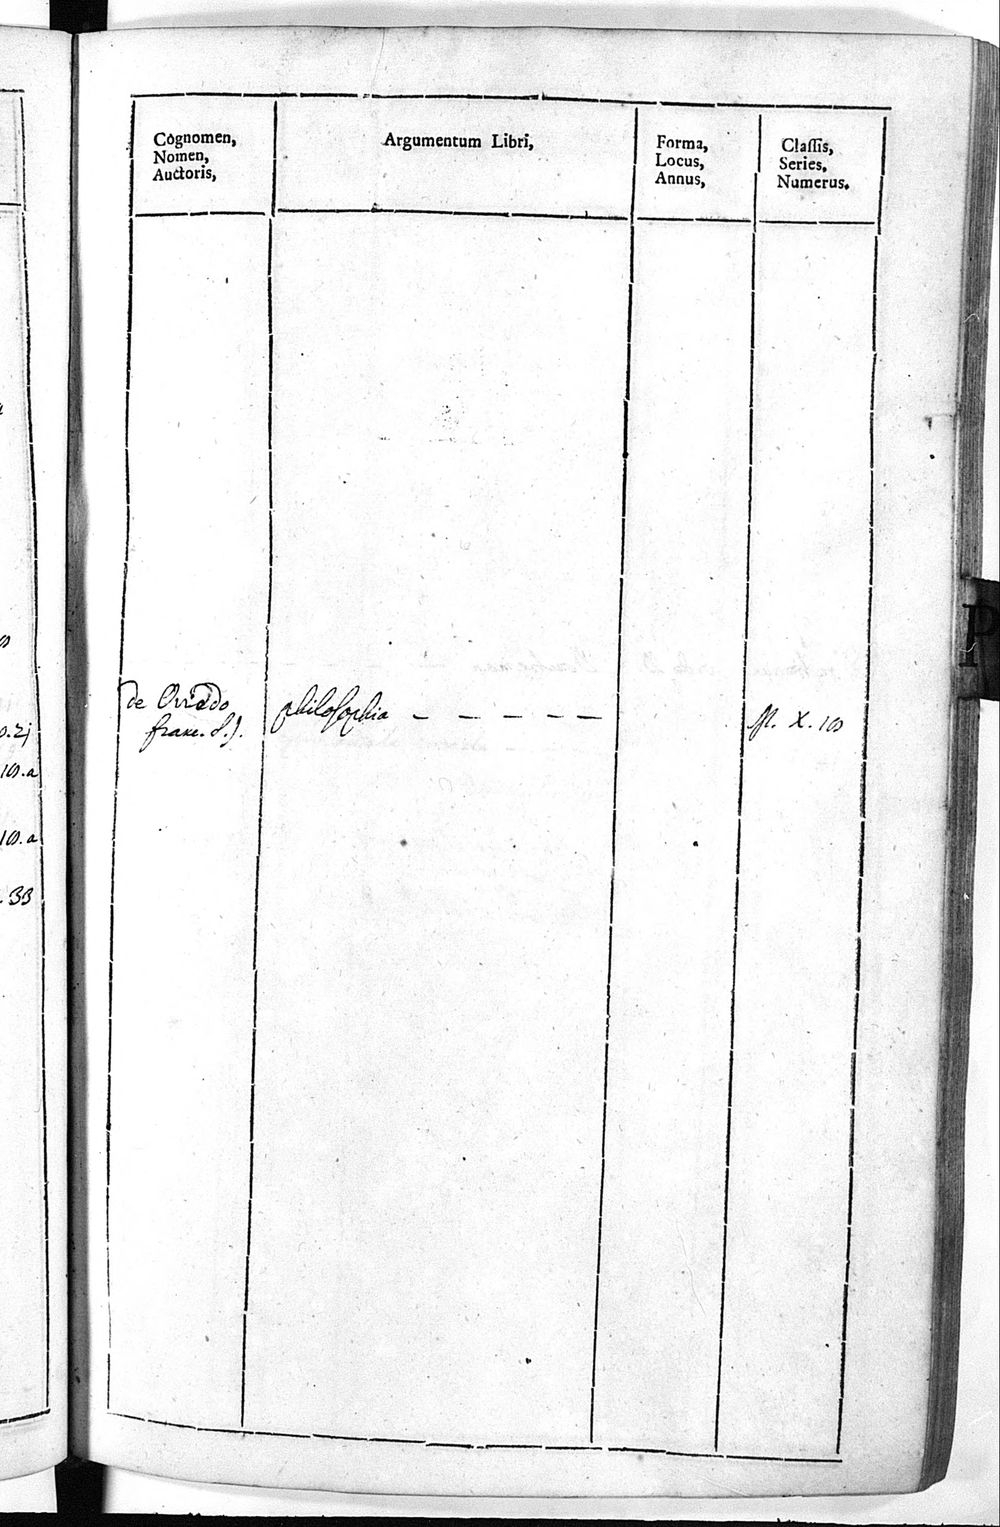 Cognomen,
Nomen,
Auctoris,
Argumentum Libri,
Forma,
Locus,
Annus,
Classis,
Series,
Numerus.
de Oviedo
franc. S. J.
philosophia - - - - -
X. 10
0.2j
10.a
10.a
. 33
P